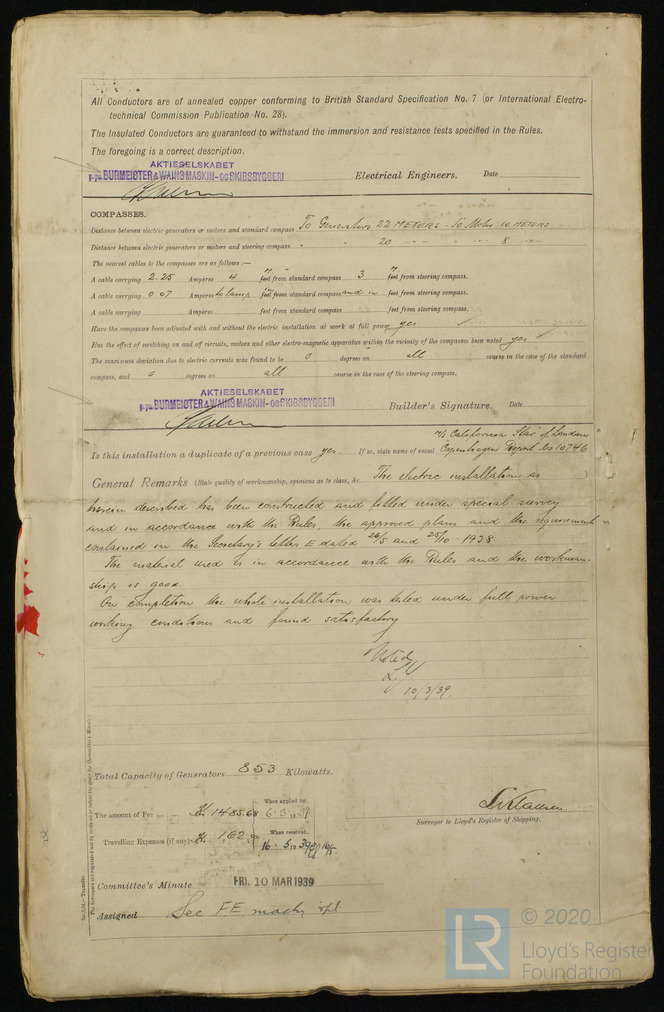 All Conductors are of annealed copper conforming to British Standard Specification No. 7 (or International Electro-
technical Commission Publication No. 28).
The Insulated Conductors are guaranteed to withstand the immersion and resistance tests specified in the Rules.
The foregoing is a correct description.
AKTIESELSKABET
p.p. BURMEISTER & WAIN'S MASKIN- OG SKIBSBYGGERI Electrical Engineers. Date
COMPASSES.
Distance between electric generators or motors and standard compass To Generators 22 METERS - To Motor 10 METERS
Distance between electric generators or motors and steering compass " " 20 " " " 8 "
The nearest cables to the compasses are as follows:—
A cable carrying 2.25 Ampères 4 feet from standard compass 3 feet from steering compass.
A cable carrying 0.07 Ampères to lamp feet from standard compass and in feet from steering compass.
A cable carrying Ampères feet from standard compass feet from steering compass.
Have the compasses been adjusted with and without the electric installation at work at full power yes
Has the effect of switching on and off circuits, motors and other electro-magnetic apparatus within the vicinity of the compasses been noted yes
The maximum deviation due to electric currents was found to be 0 degrees on all course in the case of the standard
compass, and 0 degrees on all course in the case of the steering compass.
AKTIESELSKABET
p.p. BURMEISTER & WAIN'S MASKIN- OG SKIBSBYGGERI Builder's Signature. Date
M/S California Star of London
Is this installation a duplicate of a previous case yes If so, state name of vessel Copenhagen Report No 10746
General Remarks (State quality of workmanship, opinions as to class, &c. The electric installation as
herein described has been constructed and fitted under special survey
and in accordance with the Rules, the approved plans and the requirements
contained in the Secretary's letter E dated 26/5 and 25/10 - 1938
The material used is in accordance with the Rules and the workman-
ship is good.
On completion the whole installation was tested under full power
working conditions and found satisfactory
Noted
10/3/39.
Total Capacity of Generators 853 Kilowatts.
The amount of Fee Kr. 1485.68 When applied for, 6.3.1939
Surveyor to Lloyd's Register of Shipping.
Travelling Expenses (if any) Kr. 162 When received, 16.5.1939
Committee's Minute FRI. 10 MAR 1939
Assigned See FE machy rpt
The Surveyors are requested not to write on or below the space for Committee's Minute.
Transfer
© 2020
LR
Lloyd's Register
Foundation